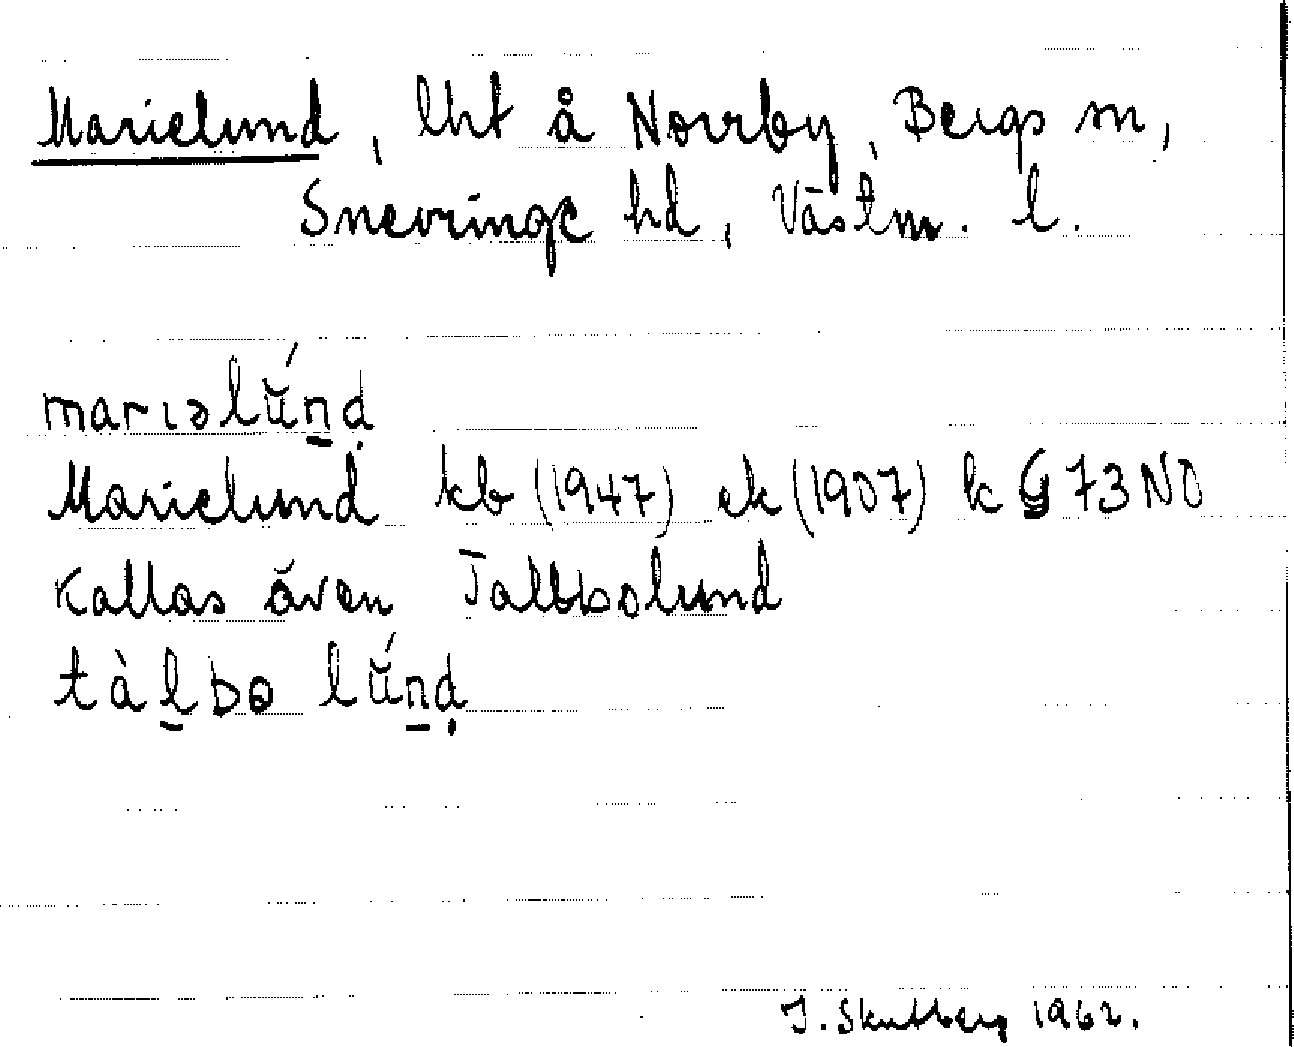 Marielund, lht å Norrby, Bergs sn,
Snevringe hd, Västm. l.
marıəlŭ́n̠ḍ
Marielund kb (1947) ek (1907) k G 73 NO
Kallas även Talbbolund
tàl̠bə lŭ́n̠ḍ
J. Skutberg 1962.